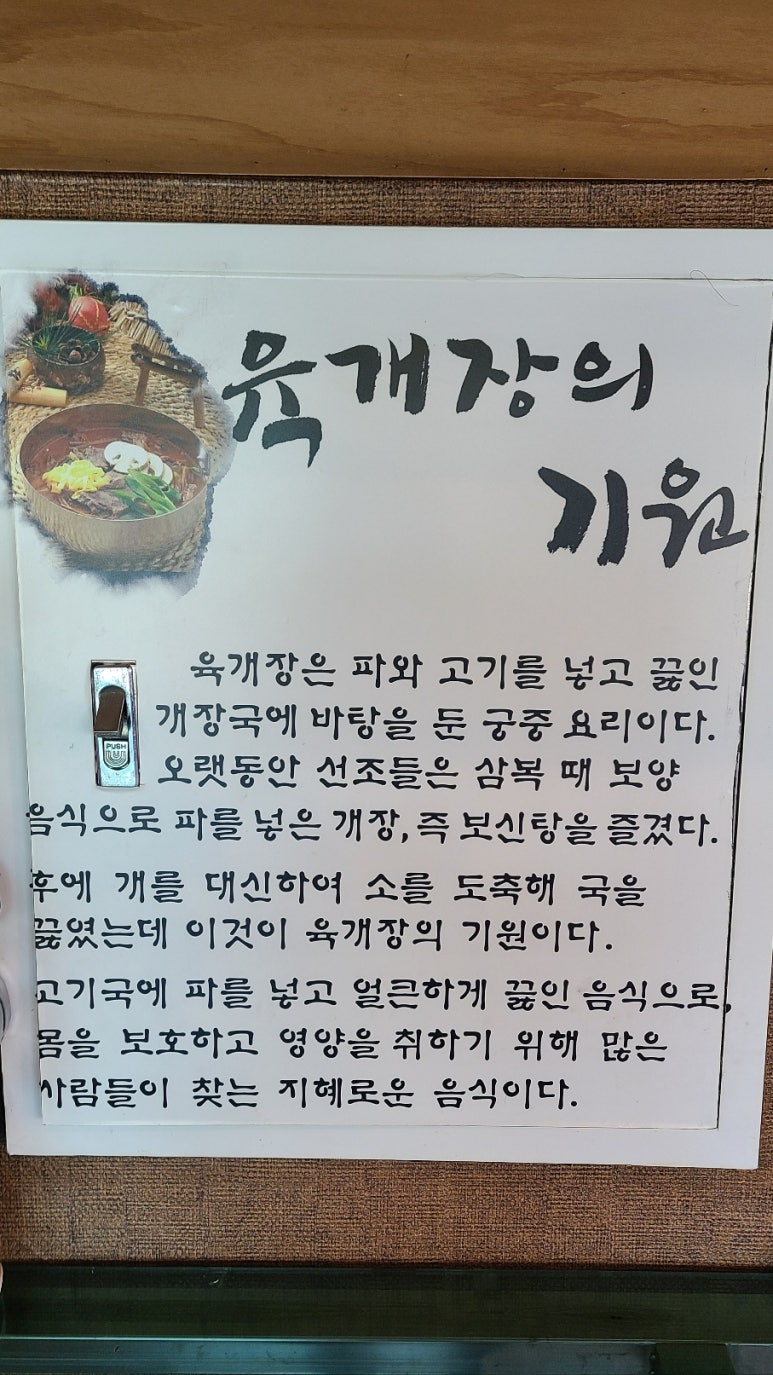 육개장의
기원
육개장은 파와 고기를 넣고 끓인
개장국에 바탕을 둔 궁중 요리이다.
PUSH
오랫동안 선조들은 삼복 때 보양
음식으로 파를 넣은 개장, 즉 보신탕을 즐겼다.
후에 개를 대신하여 소를 도축해 국을
끓였는데 이것이 육개장의 기원이다.
고기국에 파를 넣고 얼큰하게 끓인 음식으로,
몸을 보호하고 영양을 취하기 위해 많은
사람들이 찾는 지혜로운 음식이다.